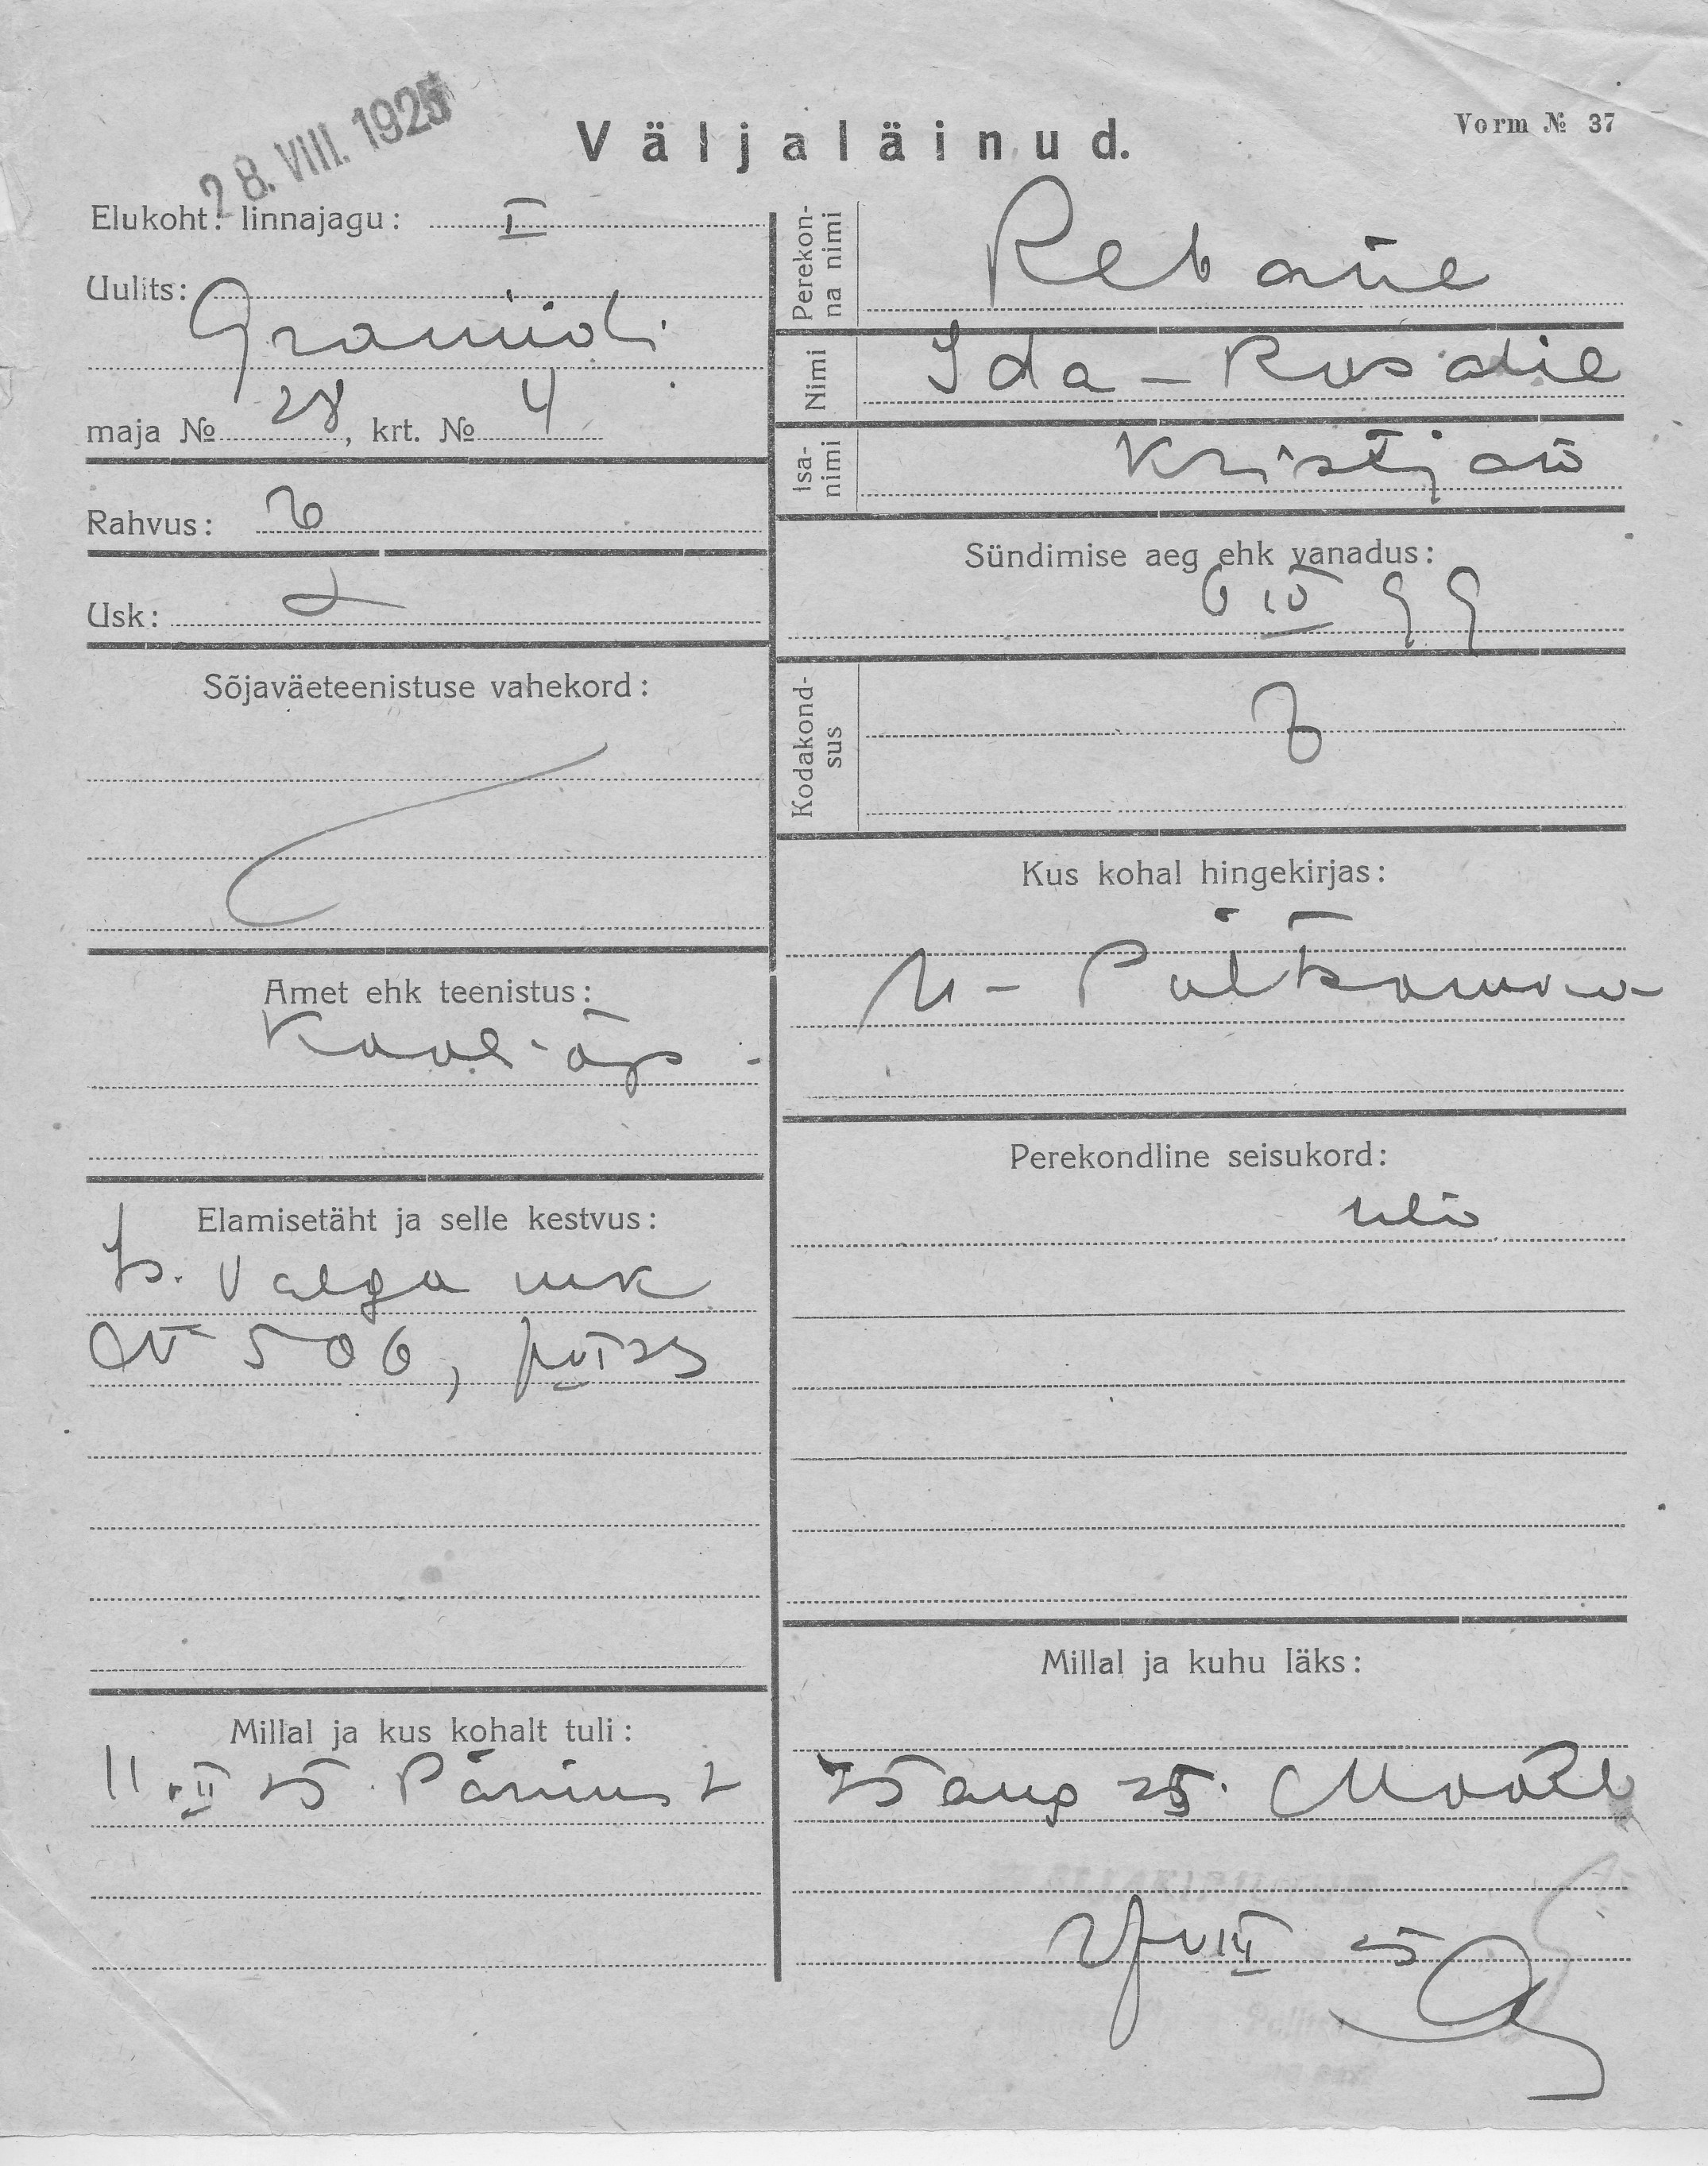 28. VIII. 1925
Väljaläinud.
Vorm № 37
Elukoht: linnajagu: I
Uulits:
Graniidi
maja № 28, krt. № 4
Rahvus: E
Usk: L
Sõjaväeteenistuse vahekord:
Amet ehk teenistus:
Kooliõp.
Elamisetäht ja selle kestvus:
Is. Valga mk
№ 506,
Millal ja kus kohalt tuli:
11. II 25 Pärnust
Perekonna nimi Rebane
Nimi Ida-Rosalie
Isanimi Kristjan
Sündimise aeg ehk vanadus:
6 IV 99
Kodakondsus E
Kus kohal hingekirjas:
Perekondline seisukord:
Millal ja kuhu läks:
25 aug 25.
VIII 25